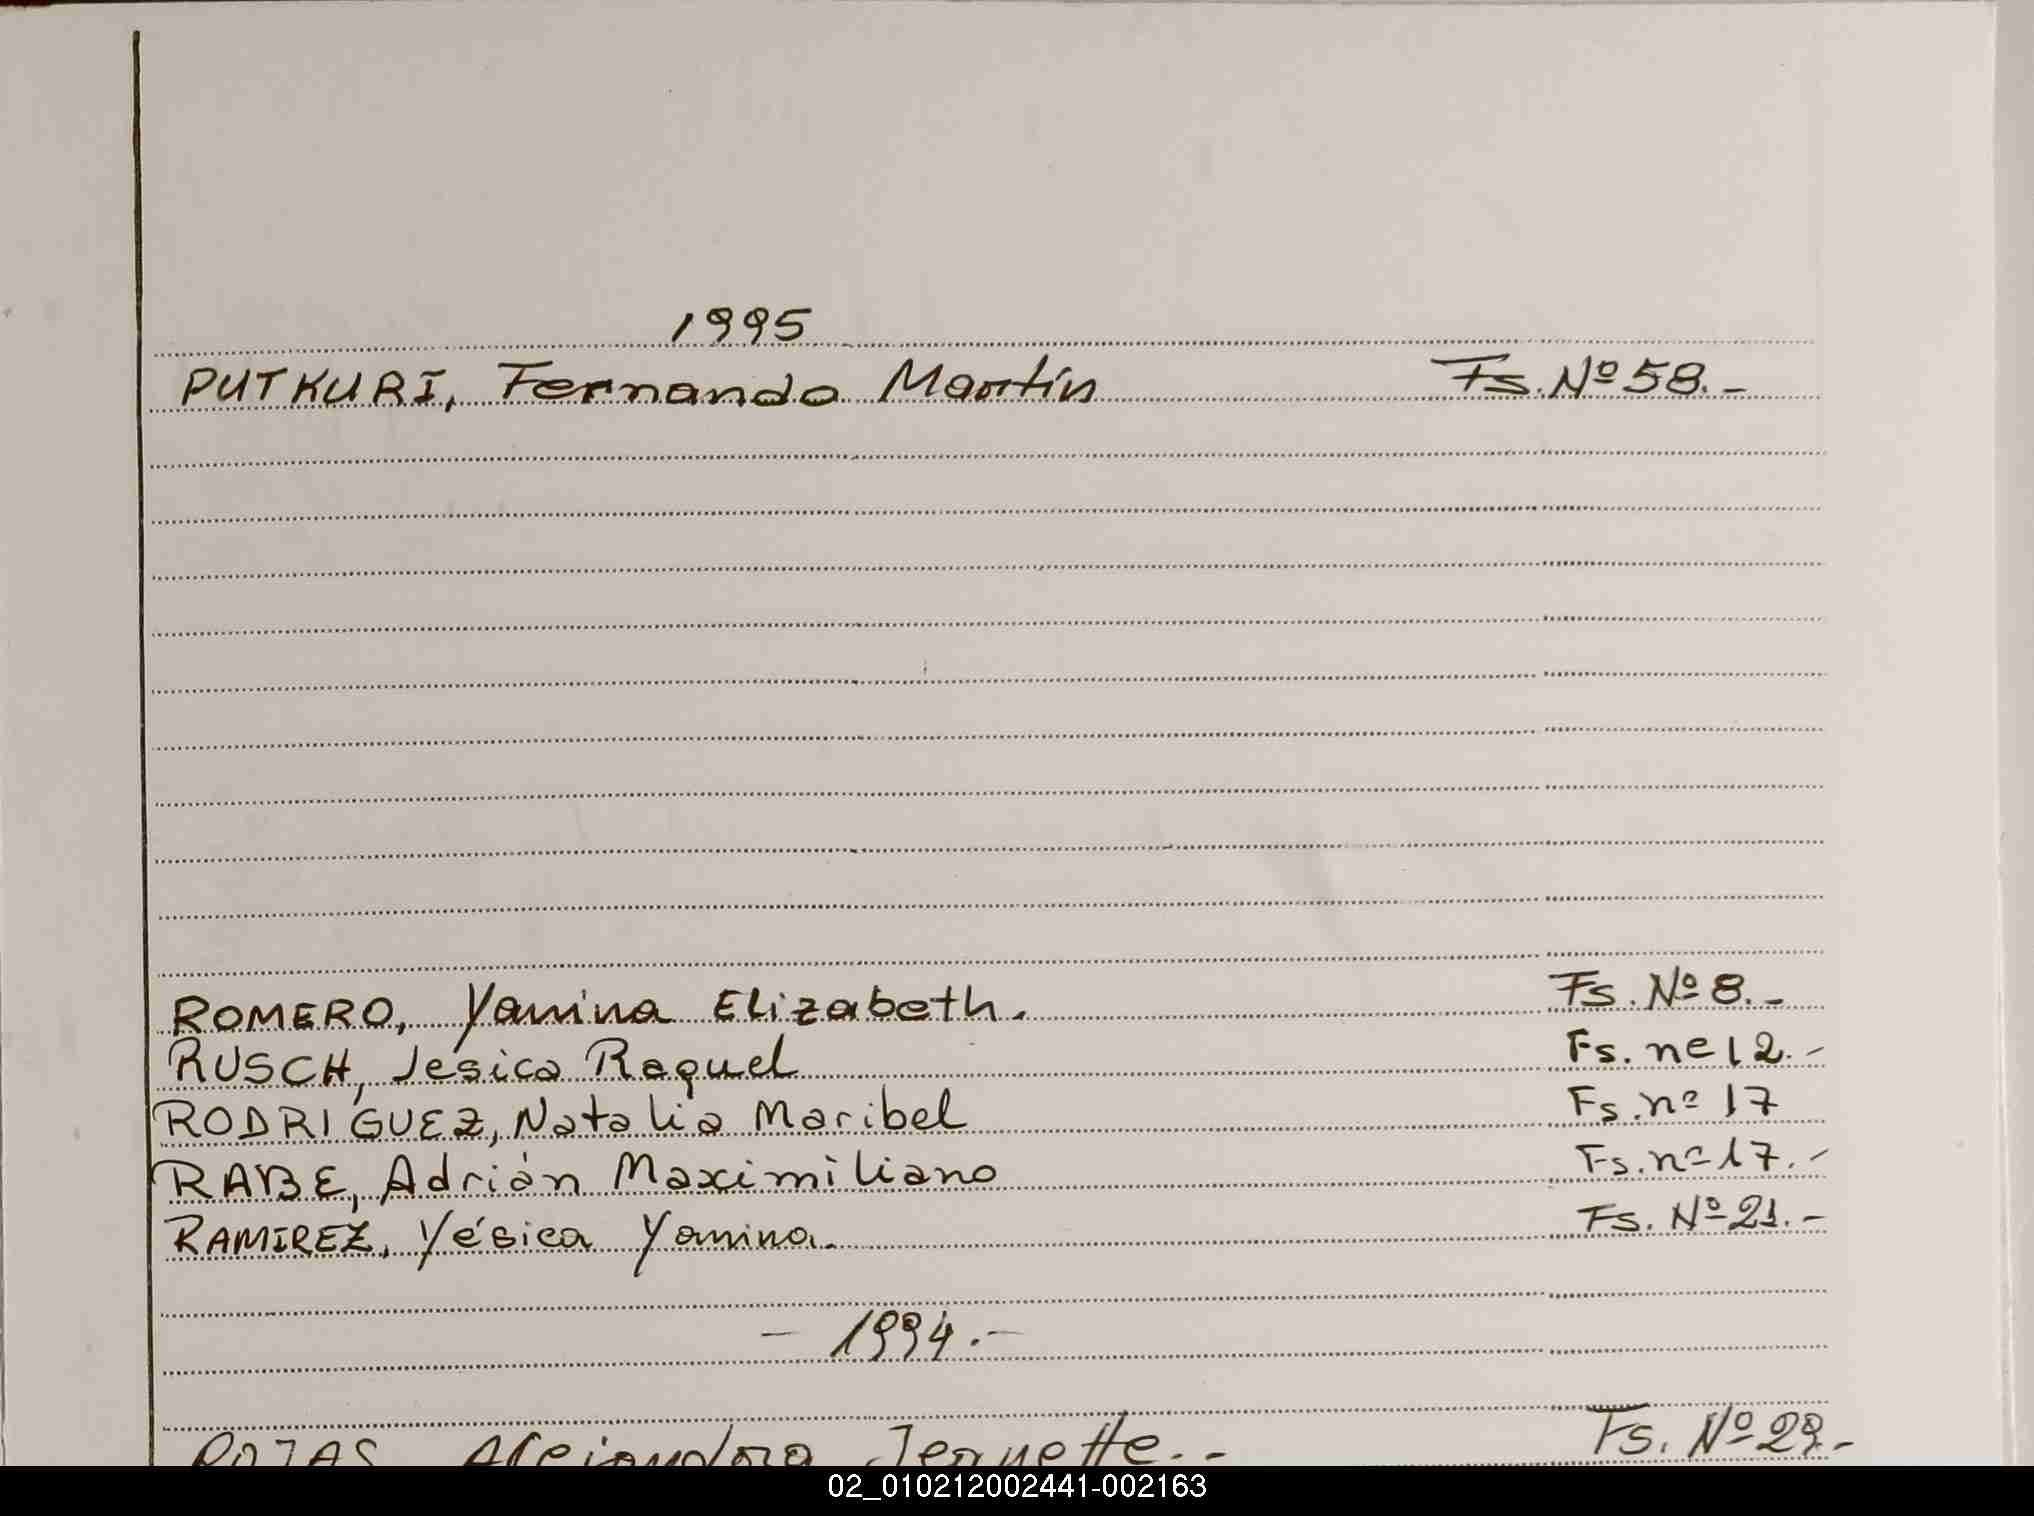 1995
PUTKURI, Fernando Martín Fs. Nº 58.-
ROMERO, Yanina Elizabeth. Fs. Nº 8.-
RUSCH, Jesica Raquel Fs. nº 12.-
RODRIGUEZ, Natalia Maribel Fs. nº 17
RABE, Adrián Maximiliano Fs. nº 17.-
RAMIREZ, Yésica Yanina. Fs. Nº 21.-
- 1994.-
ROJAS, Alejandra Jeannette.- Fs. Nº 29.-
02_010212002441-002163